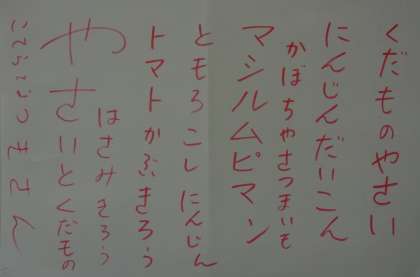 くだものやさい
にんじんだいこん
かぼちゃさつまいも
マシルムピマン
ともろこしにんじん
トマトかぶきろう
はさみきろう
やさいとくだもの